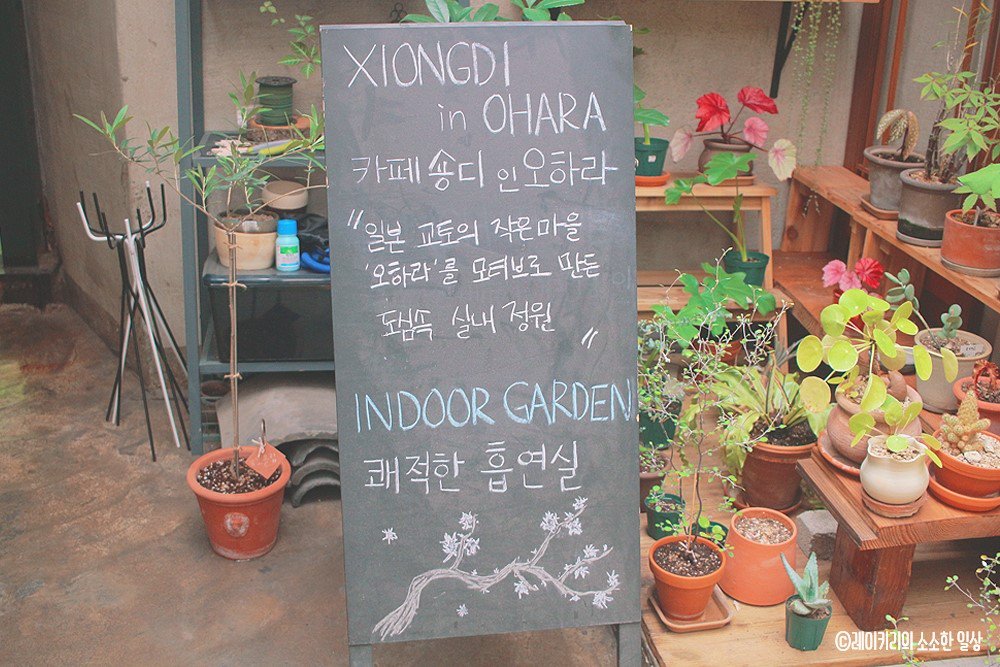 XIONGDI
in OHARA
카페 숑디 인 오하라
"일본 교토의 작은마을
'오하라'를 모티브로 만든
도심속 실내 정원"
INDOOR GARDEN
쾌적한 흡연실
©레이키리의 소소한 일상